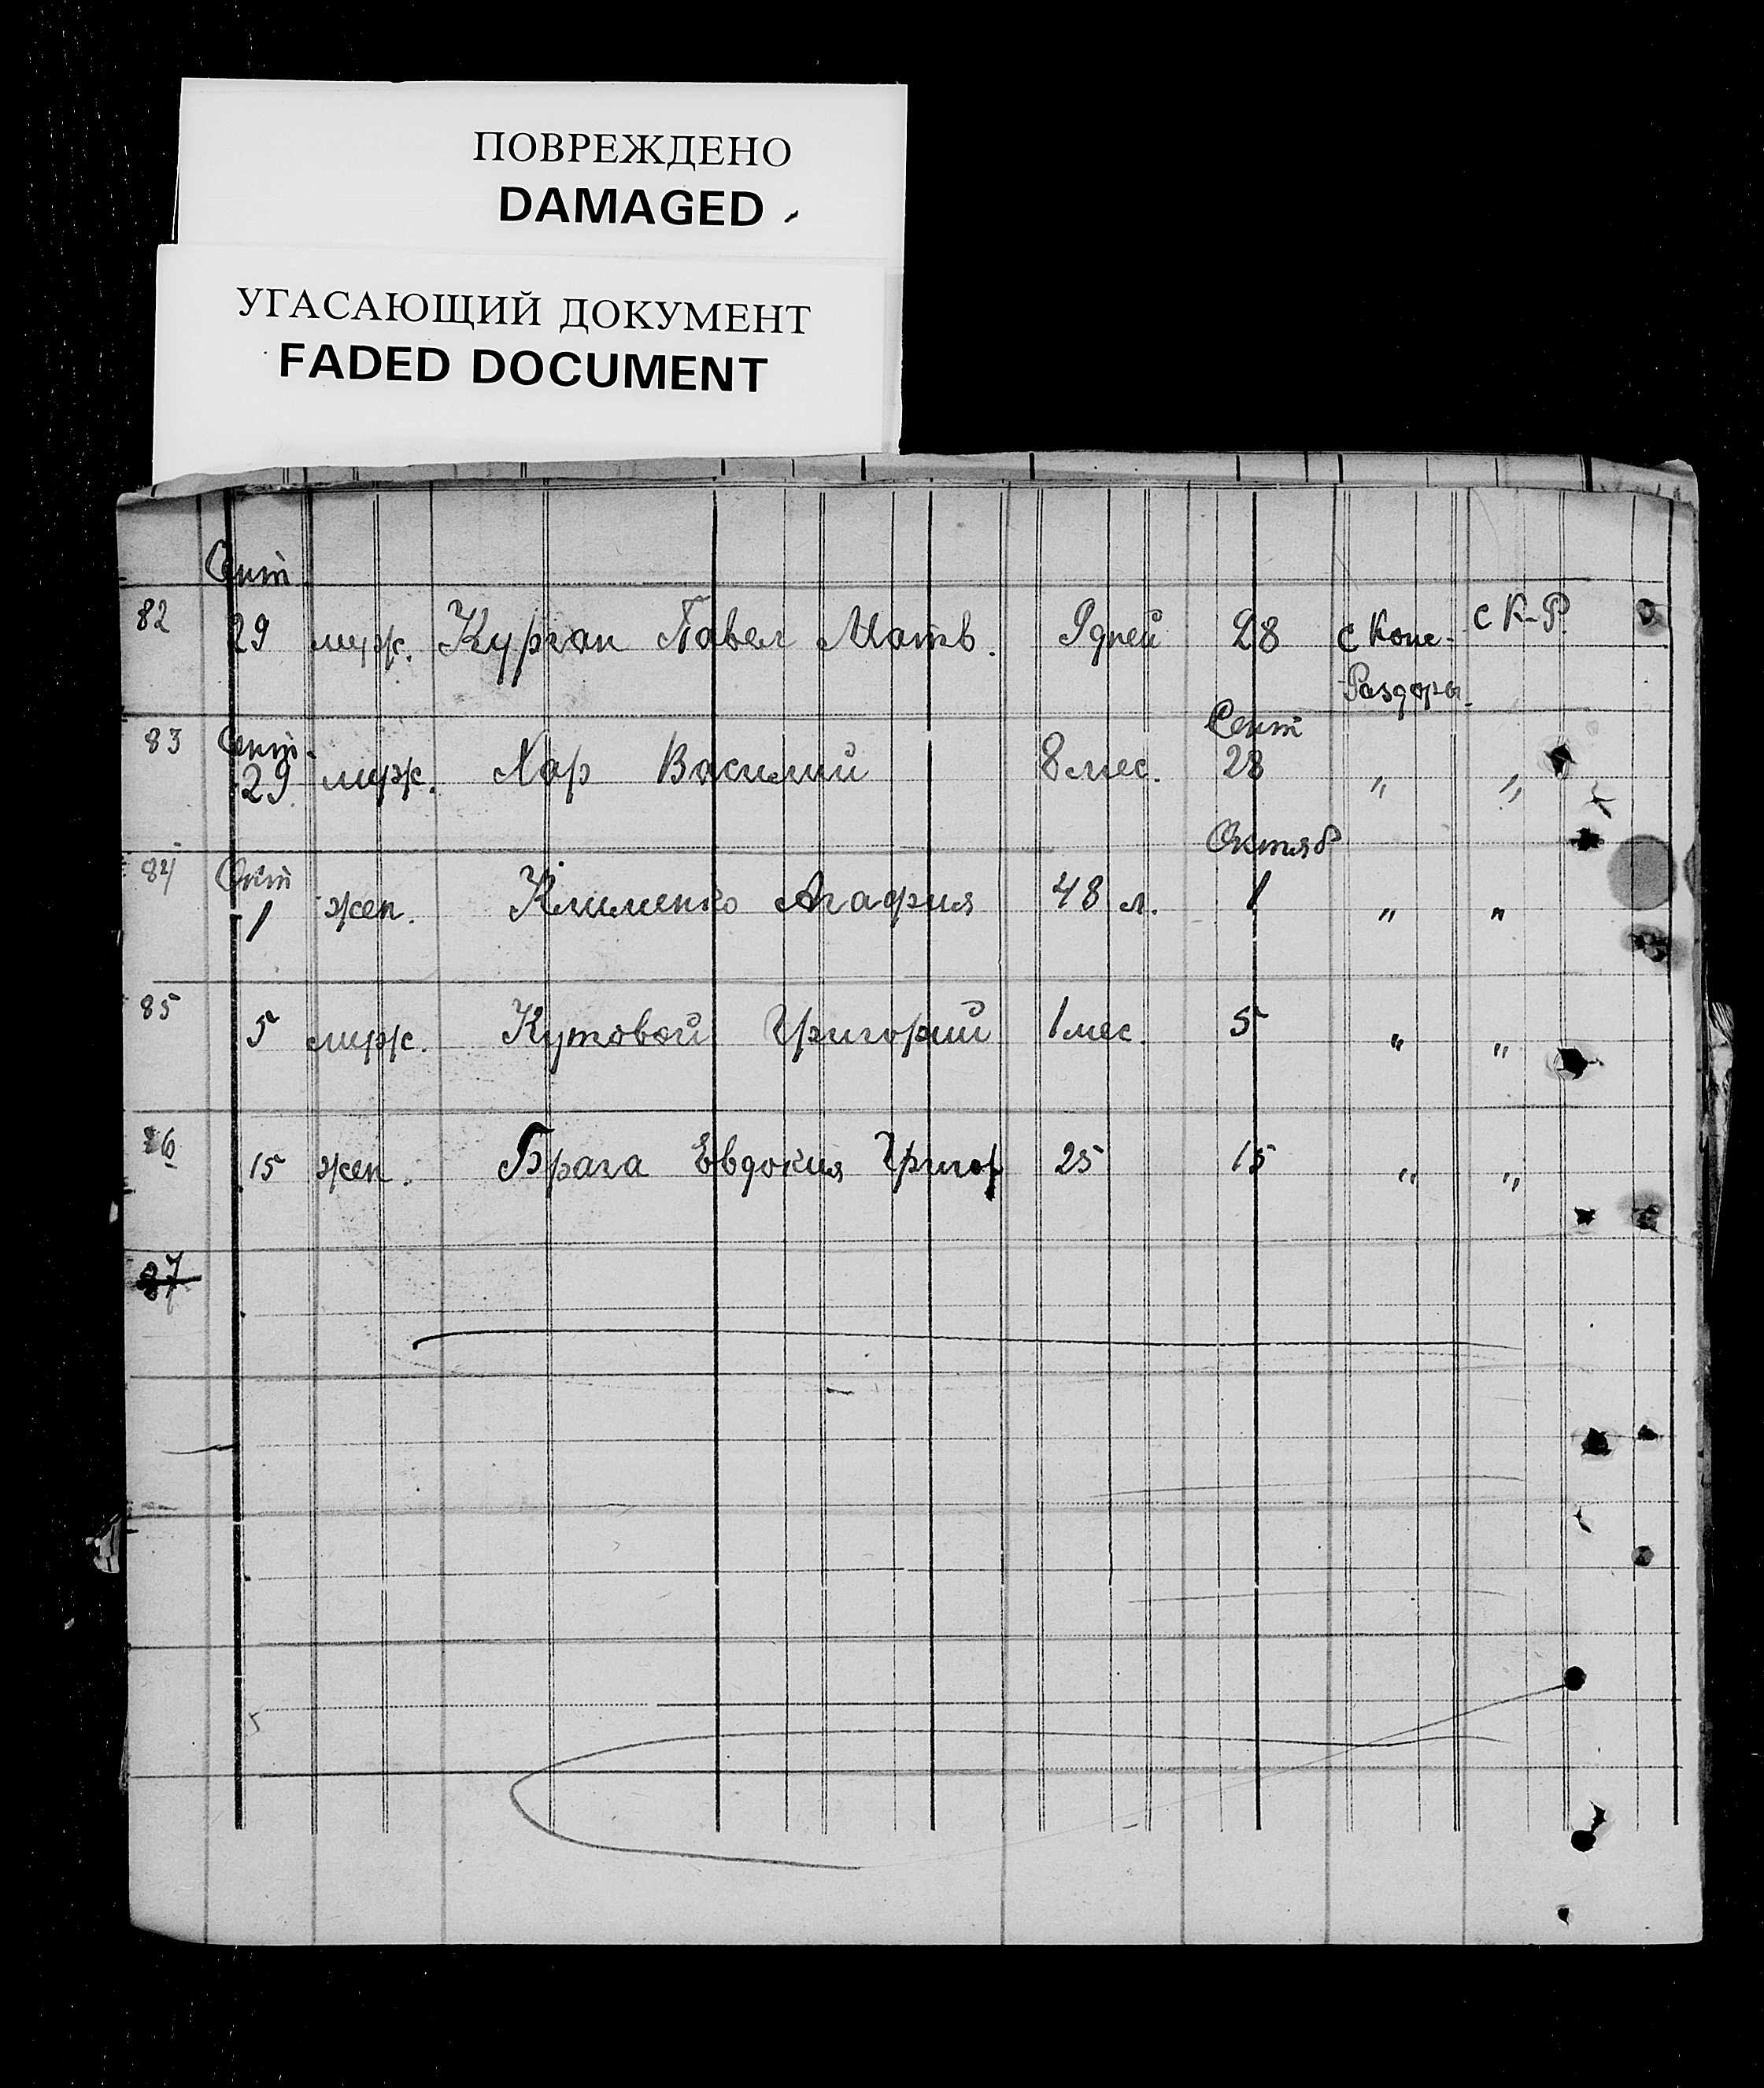 ПОВРЕЖДЕНО
DAMAGED
УГАСАЮЩИЙ ДОКУМЕНТ
FADED DOCUMENT
Сент.
82 29 муж. Курган Павел Матв. 9 дней 28 с Конс- с К-Р.
Раздоры.
83 Сент. Сент
29 муж. Хар Василий 8 мес. 28 " "
84 Октяб
1 жен. Клименко Агафия 48 л. 1 " "
85 5 муж. Кутовой Григорий 1 мес. 5 " "
86 15 жен. Брага Евдокия Григор 25 15 " "
87